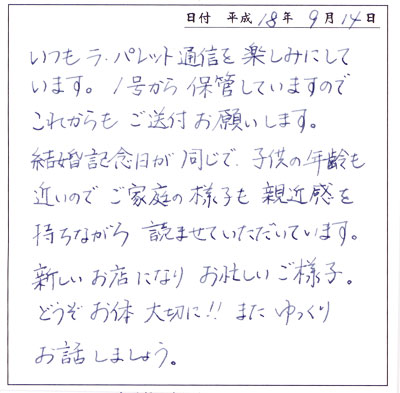 日付 平成18年 9月14日
いつも ラ・パレット通信を 楽しみにして
います。 1号から 保管していますので
これからも ご送付お願いします。
結婚記念日が 同じで、子供の年齢も
近いので ご家庭の様子も 親近感を
持ちながら 読ませていただいています。
新しいお店になり お忙しいご様子。
どうぞ お体 大切に!! また ゆっくり
お話しましょう。